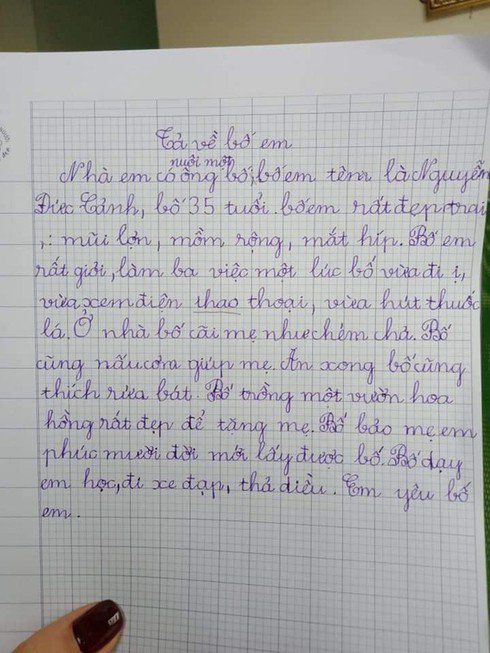 Tả về bố em
nuôi một
Nhà em có ông bố, bố em tên là Nguyễn
Đức Cảnh, bố 35 tuổi. bố em rất đẹp trai
,: mũi lợn, mồm rộng, mắt híp. Bố em
rất giỏi, làm ba việc một lúc bố vừa đi ị,
vừa xem điện thao thoại, vừa hút thuốc
lá. Ở nhà bố cãi mẹ như chém chả. Bố
cũng nấu cơm giúp mẹ. Ăn xong bố cũng
thích rửa bát. Bố trồng một vườn hoa
hồng rất đẹp để tặng mẹ. Bố bảo mẹ em
phúc mười đời mới lấy được bố. Bố dạy
em học, đi xe đạp, thả diều. Em yêu bố
em.